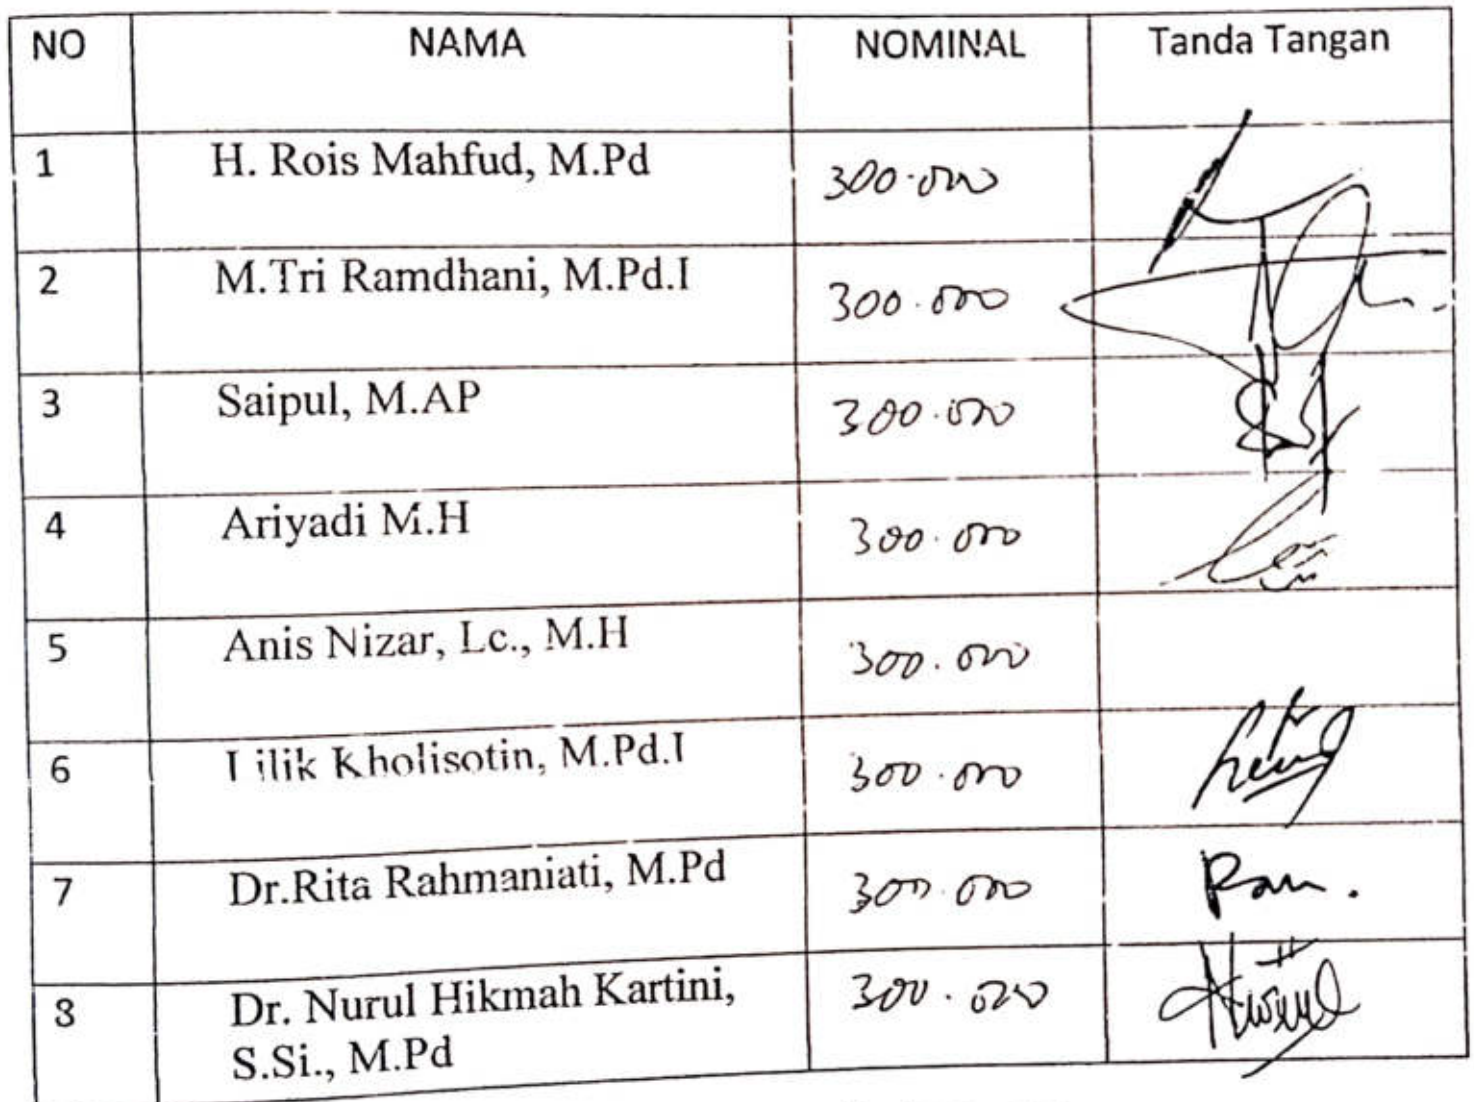 NO NAMA NOMINAL Tanda Tangan
1 H. Rois Mahfud, M.Pd 300.000
2 M.Tri Ramdhani, M.Pd.I 300.000
3 Saipul, M.AP 300.000
4 Ariyadi M.H 300.000
5 Anis Nizar, Lc., M.H 300.000
6 Lilik Kholisotin, M.Pd.I 300.000
7 Dr.Rita Rahmaniati, M.Pd 300.000
8 Dr. Nurul Hikmah Kartini, 300.000
S.Si., M.Pd